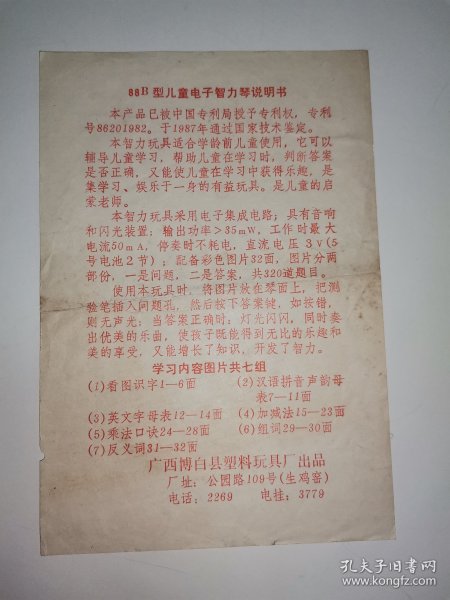 88B型儿童电子智力琴说明书
本产品已被中国专利局授予专利权，专利
号86201982。于1987年通过国家技术鉴定。
本智力玩具适合学龄前儿童使用，它可以
辅导儿童学习，帮助儿童在学习时，判断答案
是否正确，又能使儿童在学习中获得乐趣，是
集学习、娱乐于一身的有益玩具。是儿童的启
蒙老师。
本智力玩具采用电子集成电路；具有音响
和闪光装置；输出功率＞35mW，工作时最大
电流50mA，停奏时不耗电，直流电压3V（5
号电池2节）；配备彩色图片32面，图片分两
部份，一是问题，二是答案，共320道题目。
使用本玩具时，将图片放在琴面上，把测
验笔插入问题孔，然后按下答案键，如按错，
则无声光；当答案正确时，灯光闪闪，同时奏
出优美的乐曲，使孩子既能得到无比的乐趣和
美的享受，又能增长了知识，开发了智力。
学习内容图片共七组
(1)看图识字1—6面
(2)汉语拼音声韵母
表7—11面
(3)英文字母表12—14面
(4)加减法15—23面
(5)乘法口诀24—28面
(6)组词29—30面
(7)反义词31—32面
广西博白县塑料玩具厂出品
厂址：公园路109号(生鸡窑)
电话：2269 电挂：3779
孔夫子旧书网
www.kongfz.com